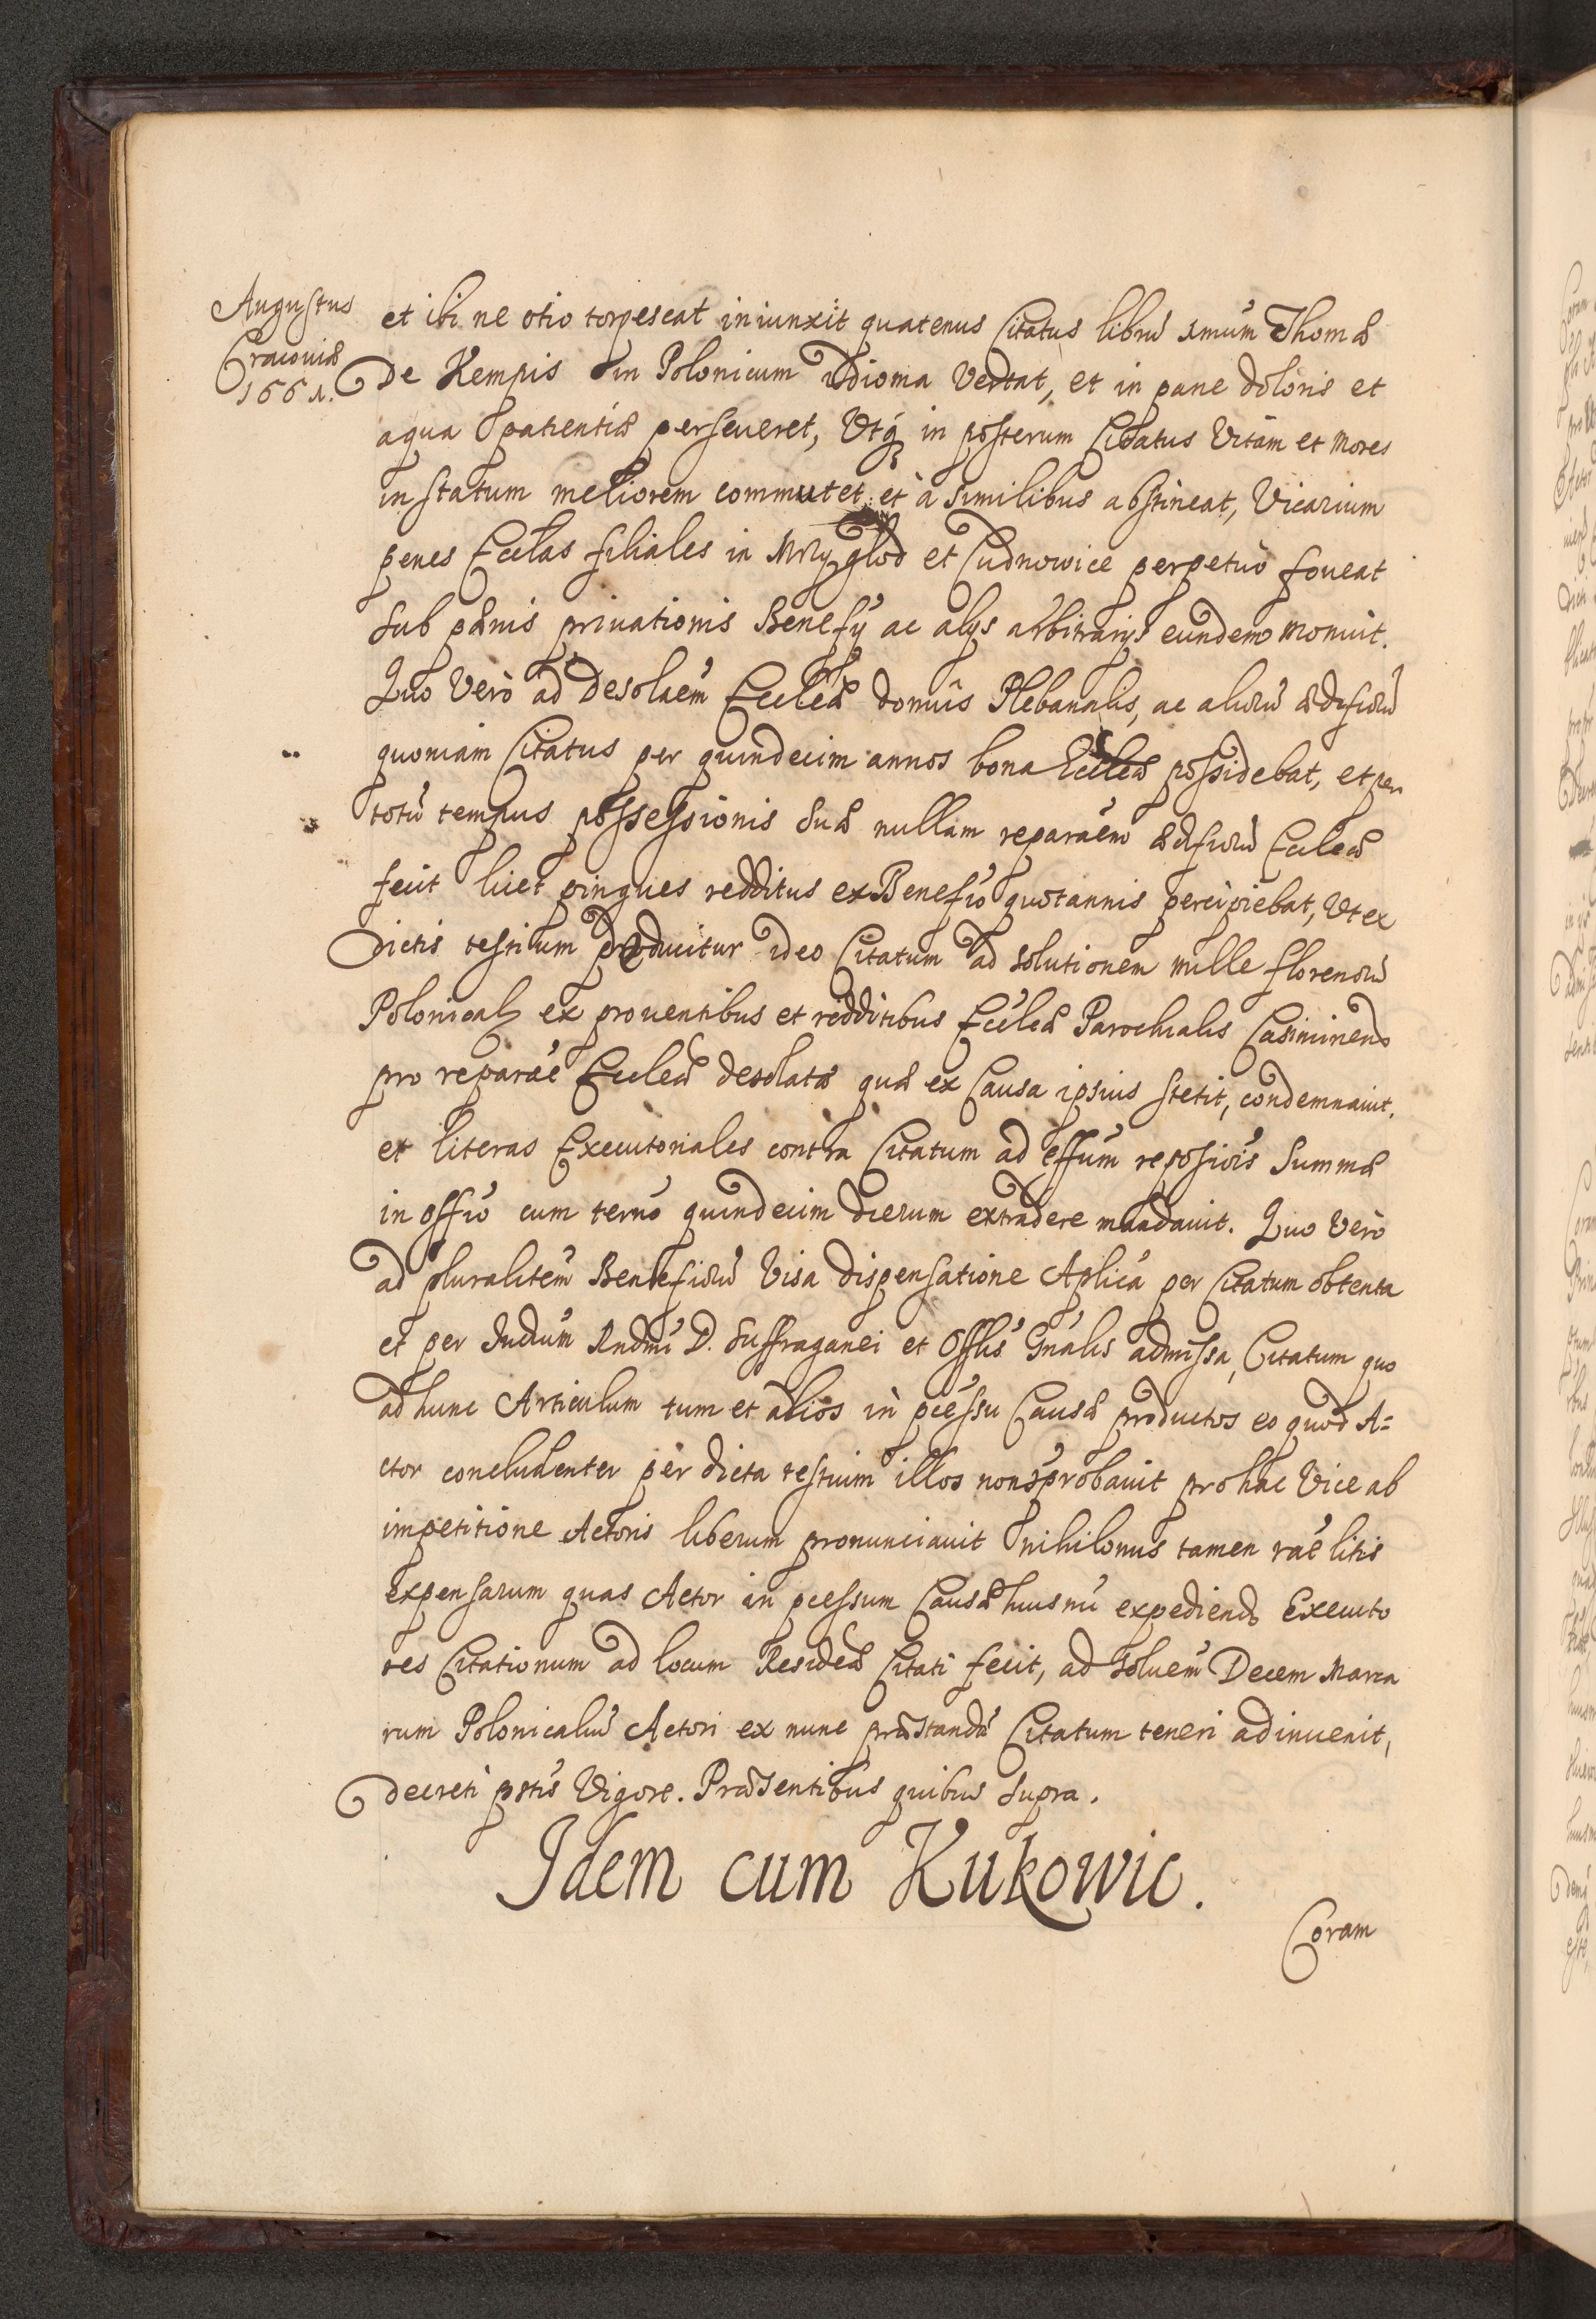 Augustus
Cracouiæ
1661.
et ibi ne otio torpescat iniunxit quatenus Citatus librũ 1mum Thomæ
De Kempis in Polonicum idioma Vertat, et in pane doloris et
aqua patientiæ perseueret, Vtq; in posterum Citatus Vitam et mores
in statum meliorem commutet et à similibus abstineat, Vicarium
penes Ecclas filiales in Mrzygłod et Cudnowice perpetuò foueat
sub pænis priuationis Benefÿ ac alÿs arbitrarÿs eundem monuit.
Quo Verò ad desolaem Eccleæ domûs Plebanalis, ac aliorũ ædificiorũ
quoniam Citatus per quindecim annos bona Eccleæ possidebat, et per
totũ tempus possessionis suæ nullam reparaem ædificiorũ Eccleæ
fecit licet pingues redditus ex Benefio quotannis percipiebat, Vt ex
dictis testium producitur ideo Citatum ad solutionem mille florenorũ
Polonicaliũ ex prouentibus et redditibus Eccleæ Parochialis Casimirien
pro reparae Eccleæ desolatæ quæ ex Causa ipsius stetit, condemnauit.
et literas Executoriales contra Citatum ad effum reposiois summæ
in offio cum terno quindecim dierum extradere mandauit. Quo Verò
ad pluralitem Beneficiorũ Visa dispensatione Aplica per Citatum obtenta
et per Iudium Rndmi D. Suffraganei et Offlis Gnalis admissa, Citatum quo
ad hunc Articulum tum et alios in pcessu Causæ productos eo quod A=
ctor concludenter per dicta testium illos non probauit pro hac Vice ab
impetitione Actoris liberum pronunciauit nihilonus tamen rae litis
expensarum quas Actor in pcessum Causæ huiusmi expediendo Executo
res Citationum ad locum Resideæ Citati fecit, ad soluem Decem Marca
rum Polonicaliũ Actori ex nunc præstandã Citatum teneri adinuenit,
decreti pntis Vigore. Præsentibus quibus supra.
Idem cum Kukowic.
Coram